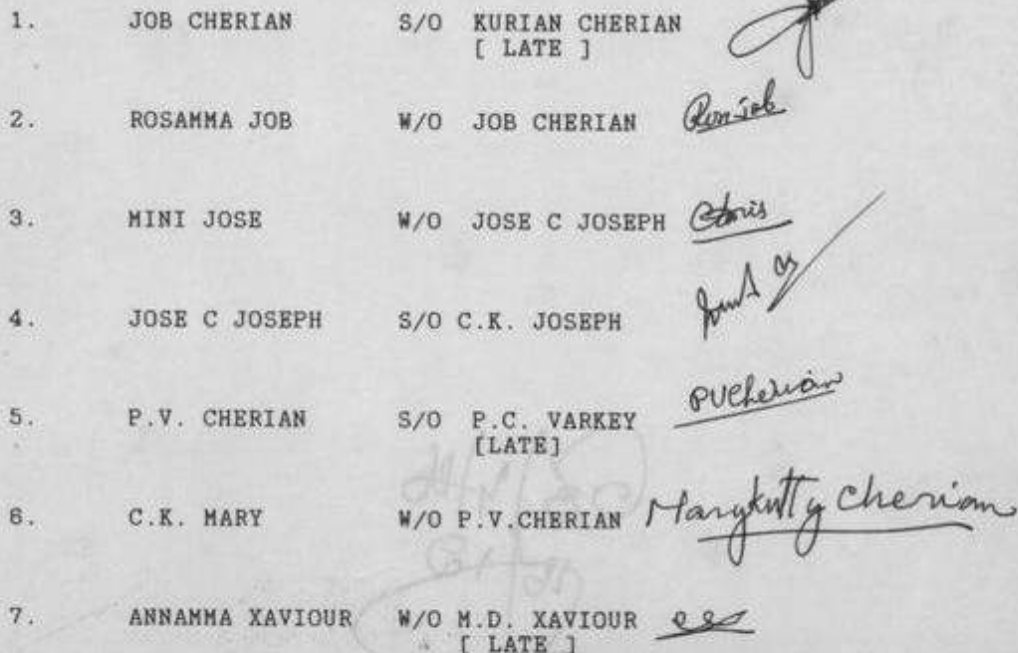 1. JOB CHERIAN S/O KURIAN CHERIAN
[ LATE ]
2. ROSAMMA JOB W/O JOB CHERIAN
3. MINI JOSE W/O JOSE C JOSEPH
4. JOSE C JOSEPH S/O C.K. JOSEPH
5. P.V. CHERIAN S/O P.C. VARKEY PVCherian
[LATE]
6. C.K. MARY W/O P.V.CHERIAN Marykutty Cherian
7. ANNAMMA XAVIOUR W/O M.D. XAVIOUR
[ LATE ]